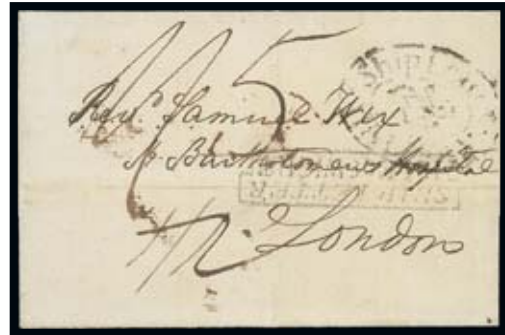 5
Ship Letter
Revd. Samuel Wix
St Bartholomew's Hospital
SHIP LETTER
London